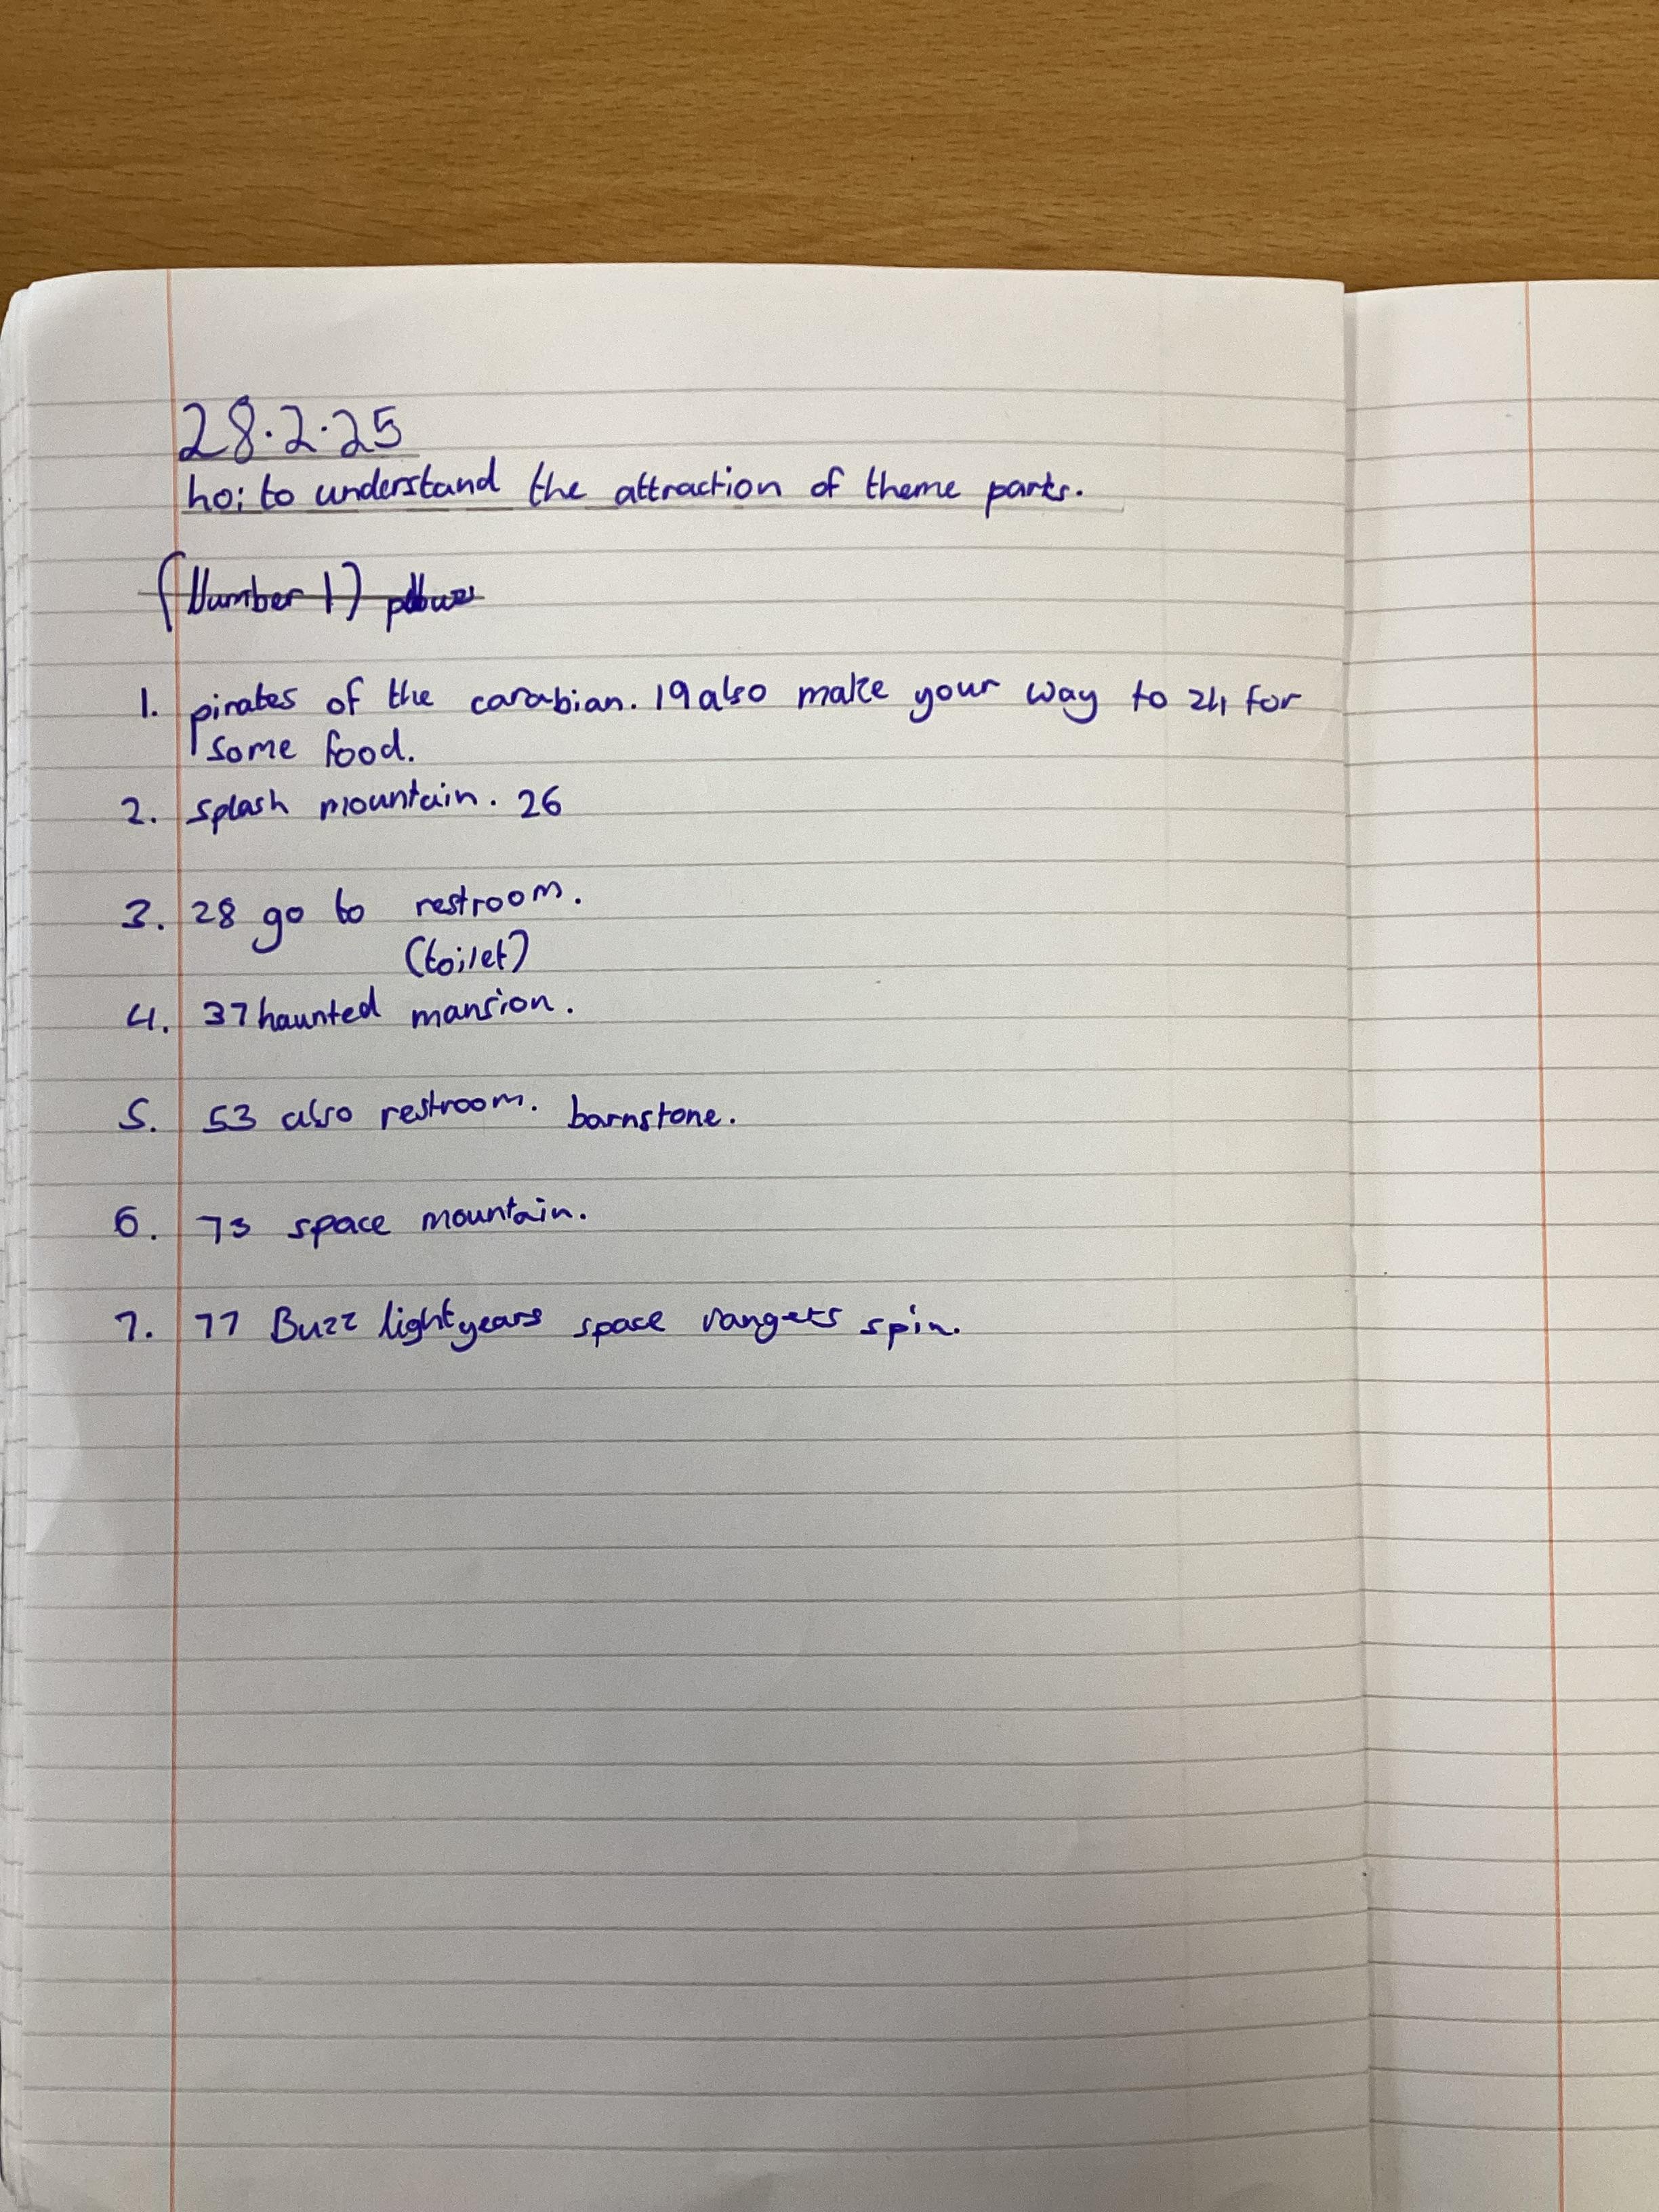 28.2.25
ho: to understand the attraction of theme parks.
(Number 1)
1. pirates of the carabian. 19 also make your way to 24 for
some food.
2. splash mountain. 26
3. 28 go to restroom.
(toilet)
4. 37 haunted mansion.
5. 53 also restroom. barnstone.
6. 73 space mountain.
7. 77 Buzz lightyears space rangers spin.